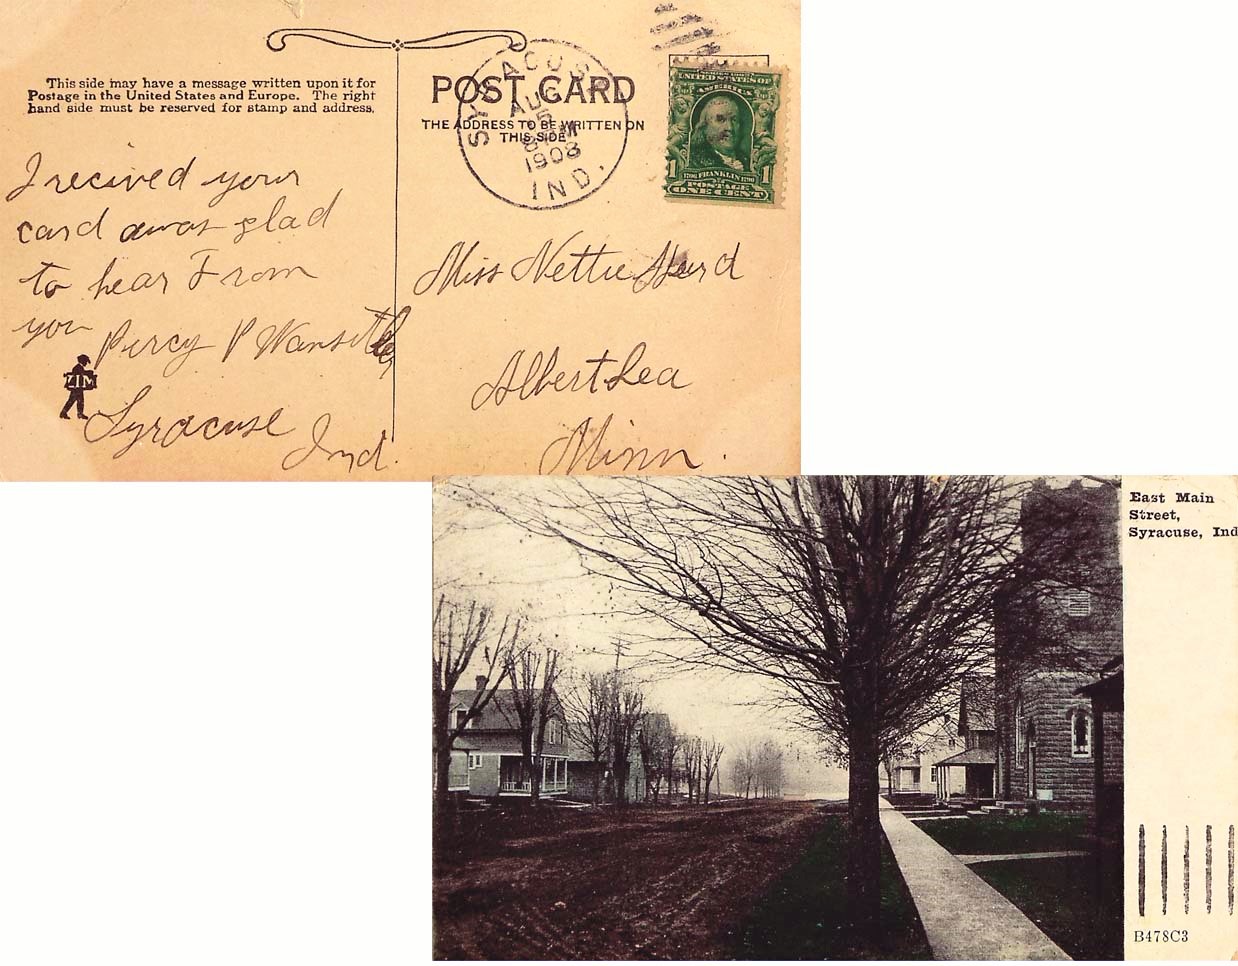 This side may have a message written upon it for
Postage in the United States and Europe. The right
hand side must be reserved for stamp and address.
POST CARD
THE ADDRESS TO BE WRITTEN ON
THIS SIDE
SYRACUSE
AUG
25
8 M
1908
IND.
SERIES 1902
UNITED STATES OF
AMERICA
1706 FRANKLIN 1790
1 POSTAGE 1
ONE CENT
I recived your
card awas glad
to hear From
you Percy P Wansitler
ZIM
Syracuse
Ind.
Miss Nettie Hurd
Albert Lea
Minn.
East Main
Street,
Syracuse, Ind
B478C3